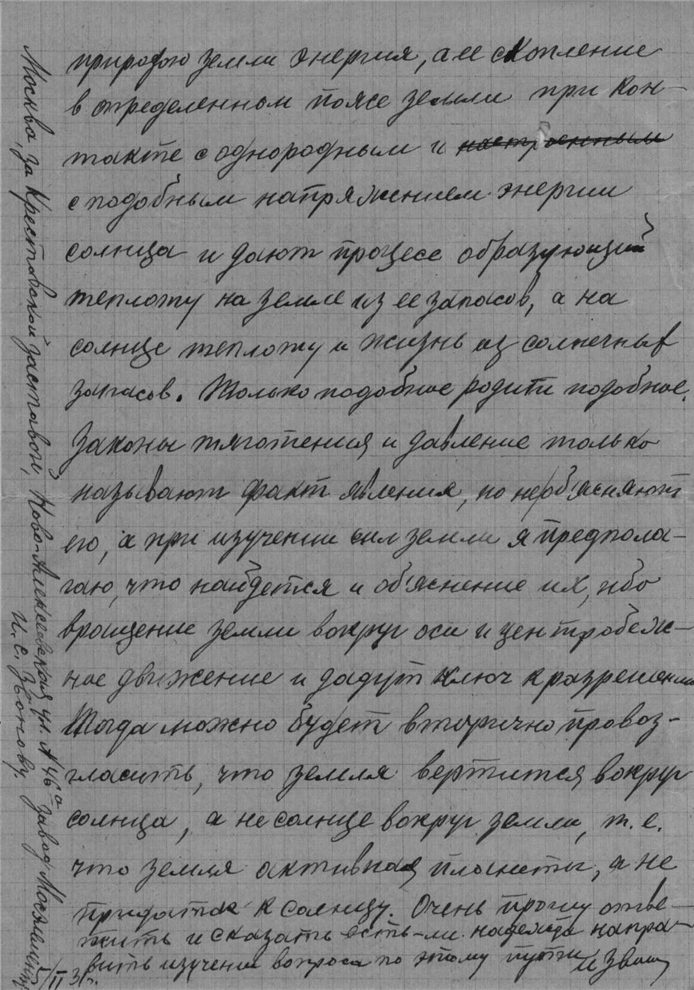 природою земли энергия, а ее скопление
в определенном поясе земли при кон-
такте с однородным и настроенным
с подобным напряжением энергии
солнца и дают процесс образующий
теплоту на земле из ее запасов, а на
солнце теплоту и жизнь из солнечных
запасов. Только подобное родит подобное.
Законы тяготения и давление только
называют факт явления, но необъясняют
его, а при изучении сил земли я предпола-
гаю, что найдется и объяснение их, ибо
вращение земли вокруг оси и центробеж-
ное движение и дадут ключ к разрешению
Тогда можно будет вторично провоз-
гласить, что земля вертится вокруг
солнца, а не солнце вокруг земли, т.е.
что земля активная планеты, а не
придаток к солнцу. Очень прошу отве-
тить и сказать есть-ли надежда напра-
вить изучение вопроса по этому пути
Москва, за Крестовской заставой, Ново-Алексеевская ул. № 46а завод
И. С. Звонову.